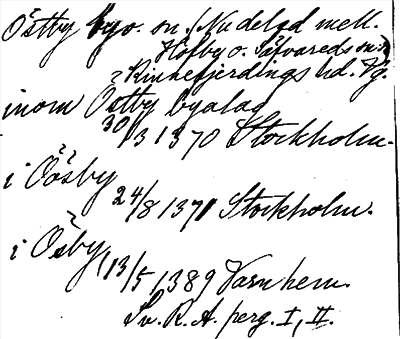 Östby by o. sn. (Nu delad mell.
Höfby o. Säfvareds sn:r)
Kinnefjerdings hd. Vg.
inom Östby byalag
30/3 1370 Stockholm.
i Öösby
24/8 1371 Stockholm.
i Ösby
13/5 1389 Varnhem.
Sv. R. A. perg. I, II.